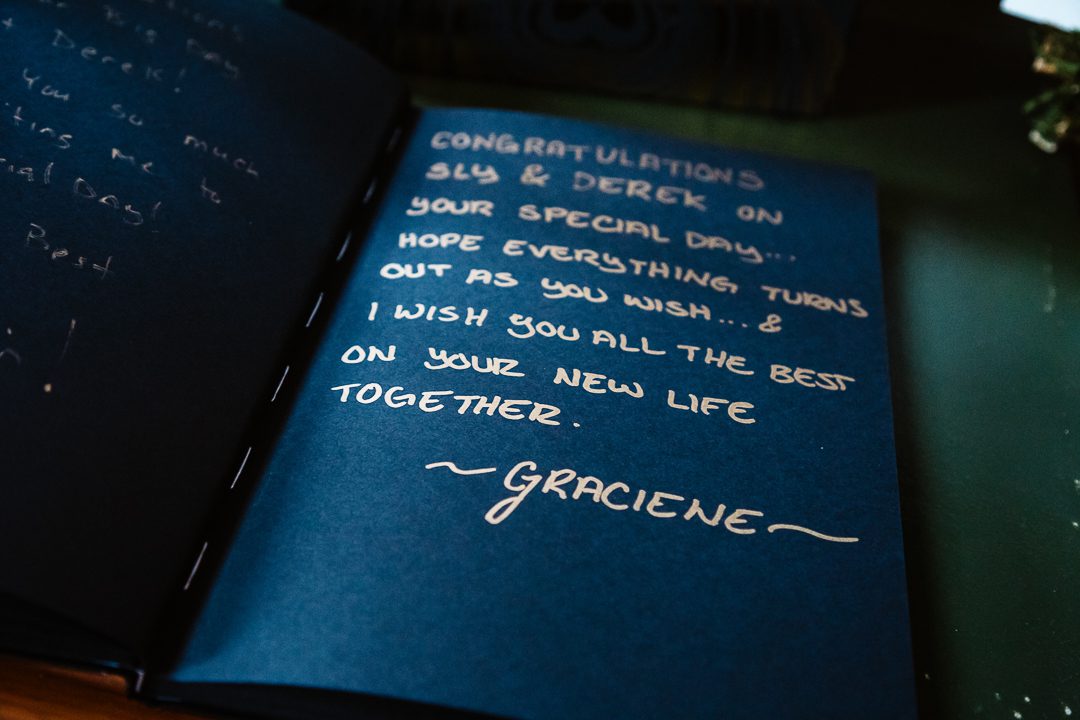 Day
Derek!
You so much
me to
Day!
Best
CONGRATULATIONS
SLY & DEREK ON
YOUR SPECIAL DAY...
HOPE EVERYTHING TURNS
OUT AS YOU WISH... &
I WISH YOU ALL THE BEST
ON YOUR NEW LIFE
TOGETHER.
~GRACIENE~